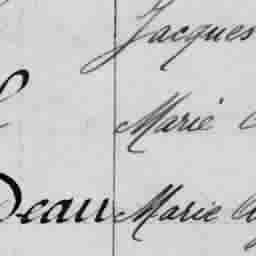 Jacques
Marie
eau Marie